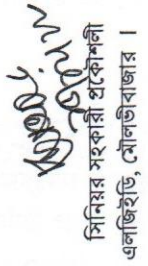 সিনিয়র সহকারী প্রকৌশলী
এলজিইডি, মৌলভীবাজার ।